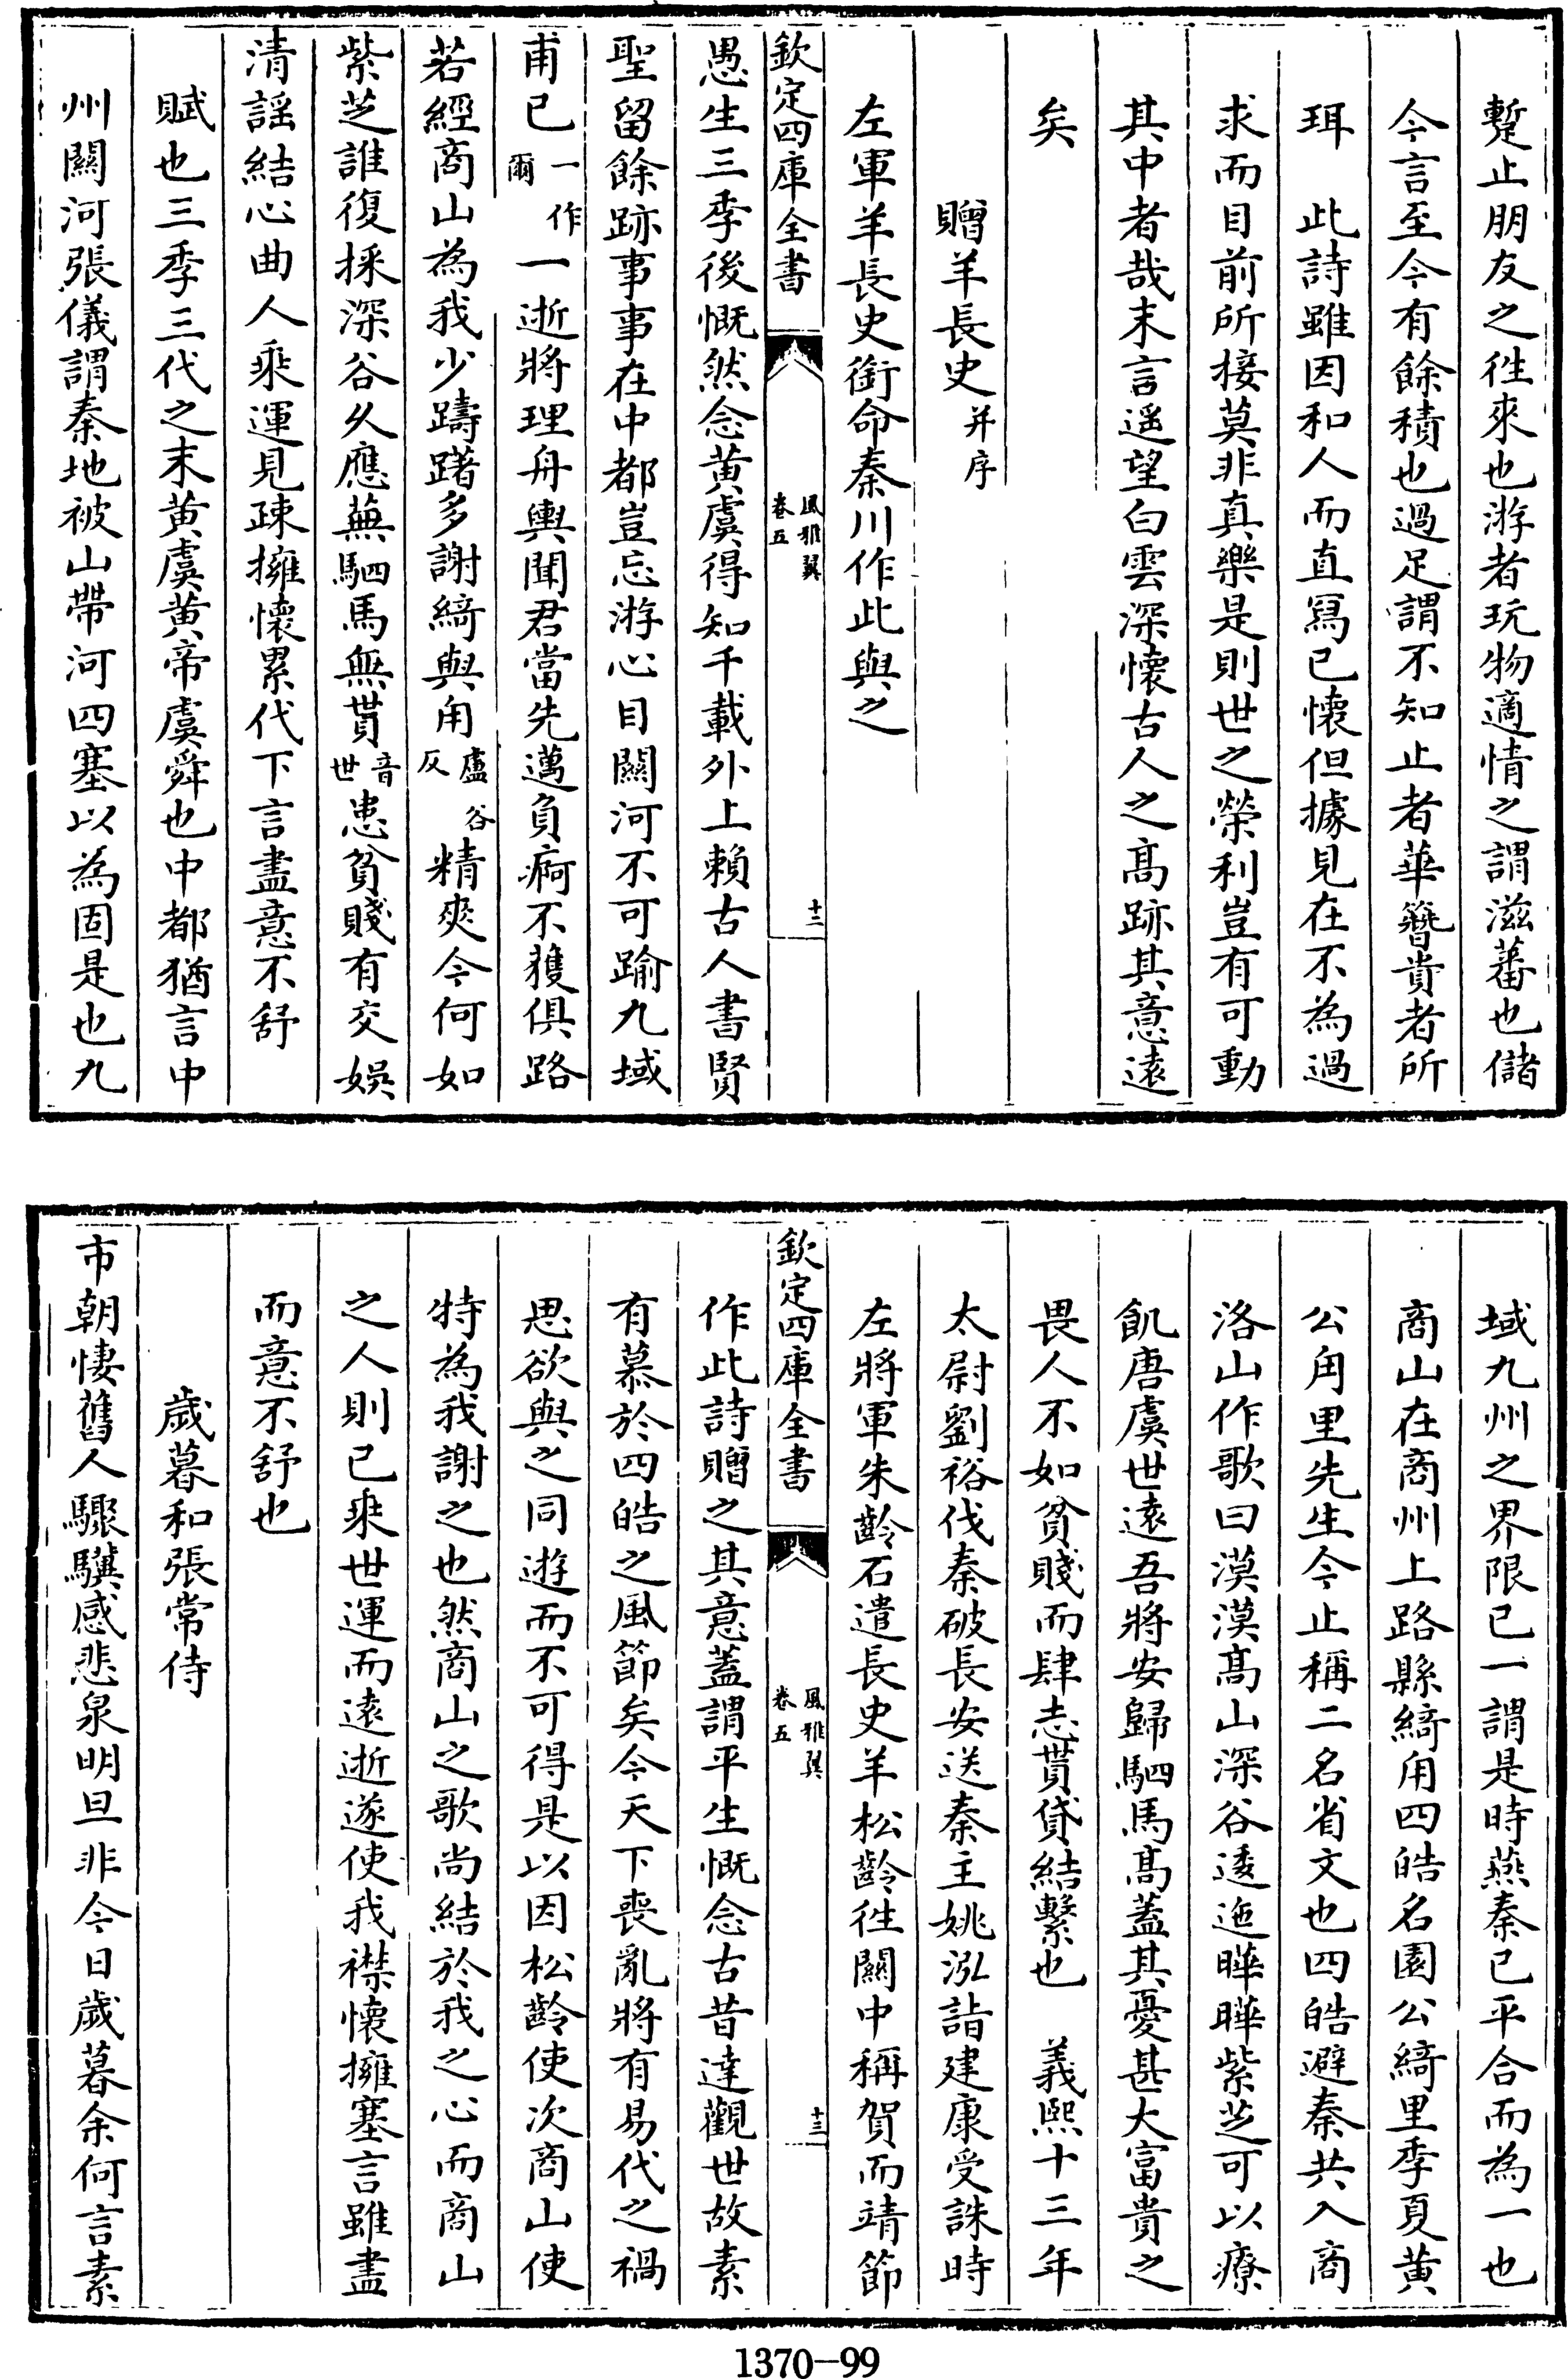 蹔止朋友之徃來也游者玩物適情之謂滋蕃也儲
今言至今有餘積也過足謂不知止者華簪貴者所
珥　此詩雖因和人而直冩已懐但據見在不為過
求而目前所接莫非真樂是則世之榮利豈有可動
其中者哉末言遥望白雲深懐古人之髙跡其意逺
矣
贈羊長史并序
左軍羊長史銜命秦川作此與之
欽定四庫全書
風雅翼
卷五
十二
愚生三季後慨然念黄虞得知千載外上賴古人書賢
聖留餘跡事事在中都豈忘游心目闗河不可踰九域
甫已一作爾一逝將理舟輿聞君當先邁負痾不獲俱路
若經商山為我少躊躇多謝綺與甪盧谷反精爽今何如
紫芝誰復採深谷久應蕪駟馬無貰音世患貧賤有交娯
清謡結心曲人乘運見疎擁懐累代下言盡意不舒
賦也三季三代之末黄虞黄帝虞舜也中都猶言中
州闗河張儀謂秦地被山帶河四塞以為固是也九
域九州之界限已一謂是時燕秦已平合而為一也
商山在商州上路縣綺甪四皓名園公綺里季夏黄
公甪里先生今止稱二名省文也四皓避秦共入商
洛山作歌曰漠漠髙山深谷逶迤曄曄紫芝可以療
飢唐虞世逺吾將安歸駟馬髙蓋其憂甚大富貴之
畏人不如貧賤而肆志貰貸結繫也　義熙十三年
太尉劉裕伐秦破長安送秦主姚泓詣建康受誅時
左將軍朱齡石遣長史羊松齡徃闗中稱賀而靖節
欽定四庫全書
風雅翼
卷五
十三
作此詩贈之其意蓋謂平生慨念古昔達觀世故素
有慕於四皓之風節矣今天下喪亂將有易代之禍
思欲與之同遊而不可得是以因松齡使次商山使
特為我謝之也然商山之歌尚結於我之心而商山
之人則已乘世運而逺逝遂使我襟懐擁塞言雖盡
而意不舒也
歲暮和張常侍
市朝悽舊人驟驥感悲泉明旦非今日歲暮余何言素
1370-99